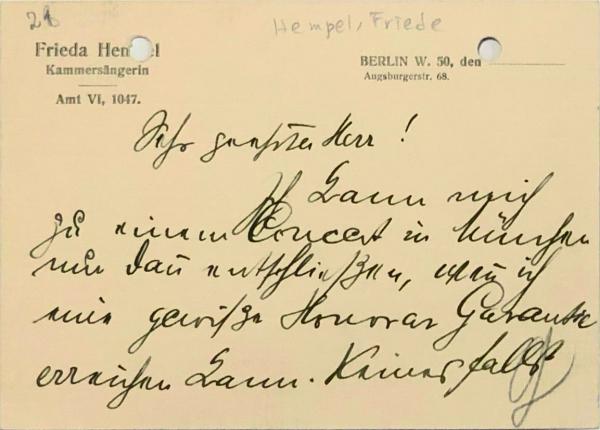 21
Hempel, Friede
Frieda Hempel
Kammersängerin
Amt VI, 1047.
BERLIN W. 50, den
Augsburgerstr. 68.
Sehr geehrter Herr!
Ich kann mich
zu einem Concert in München
nur dann entschließen, wenn ich
eine gewiße Honorar Garantie
erreichen kann. Keinesfalls